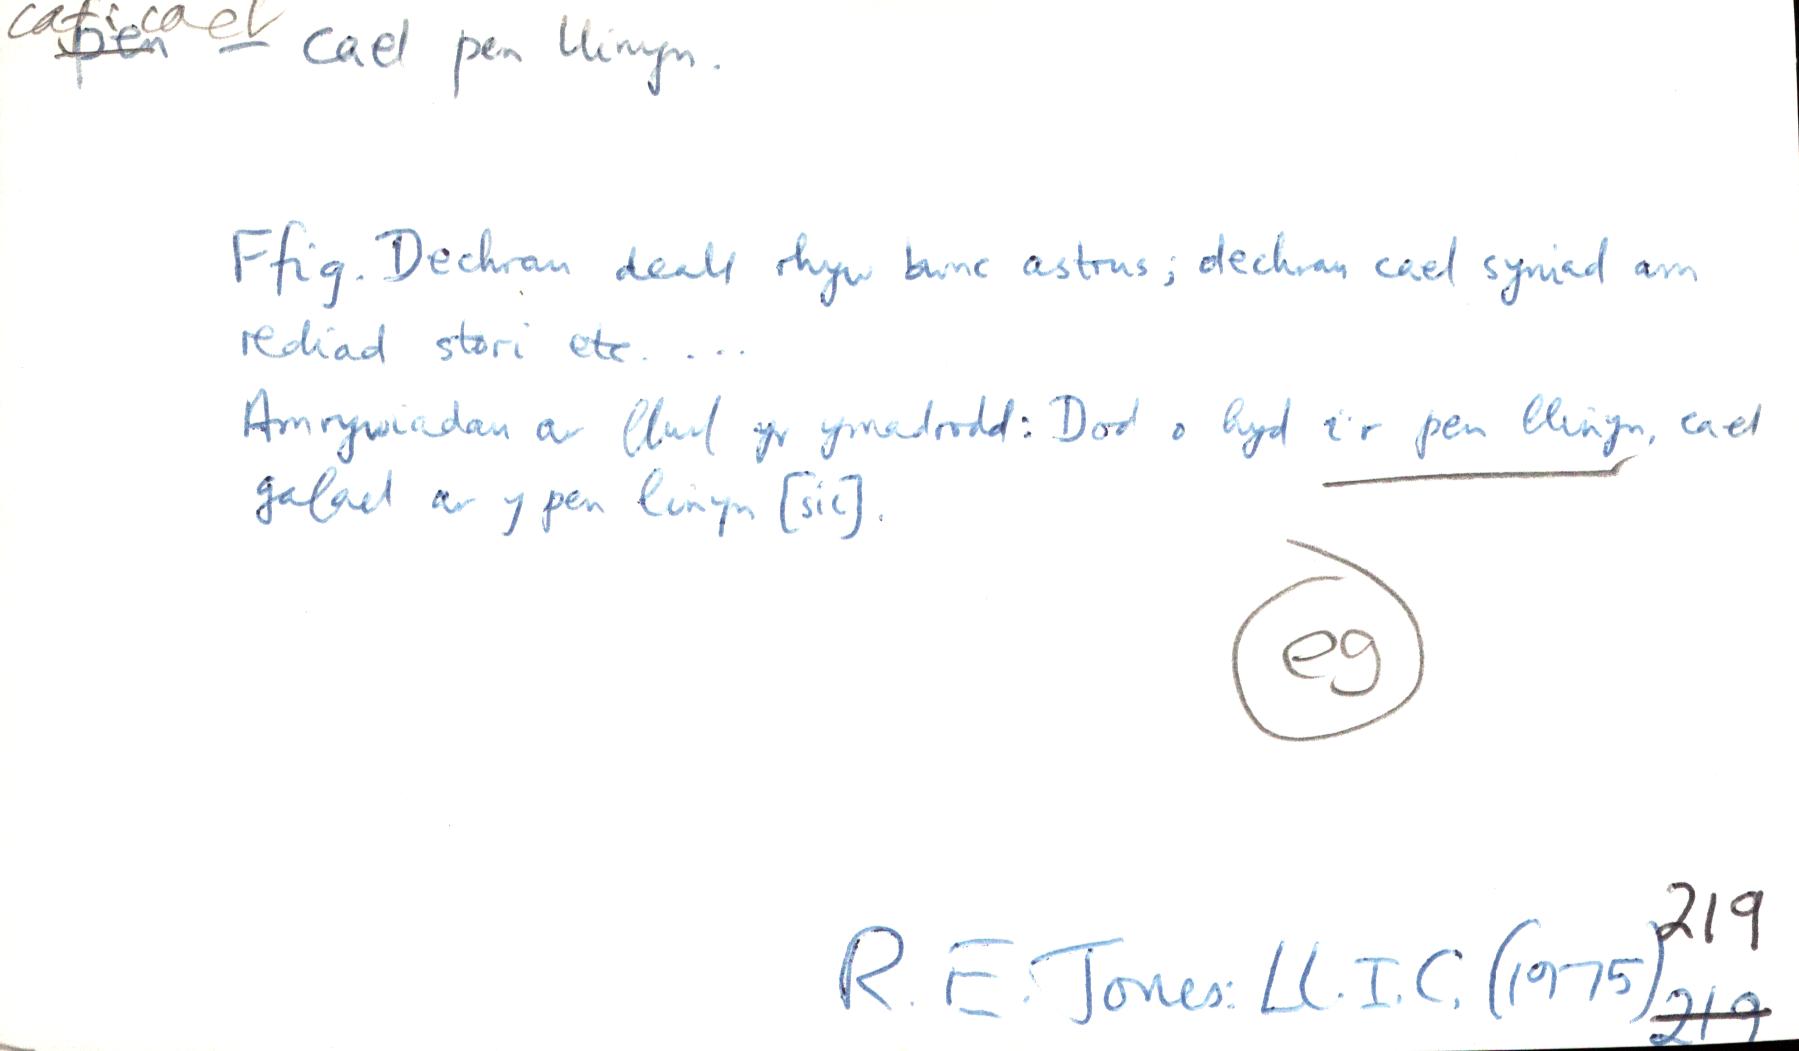 caf: cael
pen – cael pen llinyn.
Ffig. Dechrau deall rhyw bwnc astrus; dechrau cael syniad am
rediad stori etc. ...
Amrywiadau ar lluol yr ymadrodd: Dod o hyd i'r pen llinyn, cael
gafael ar y pen linyn [sic].
eg
R. E. Jones: Ll. I. C. (1975) 219
219